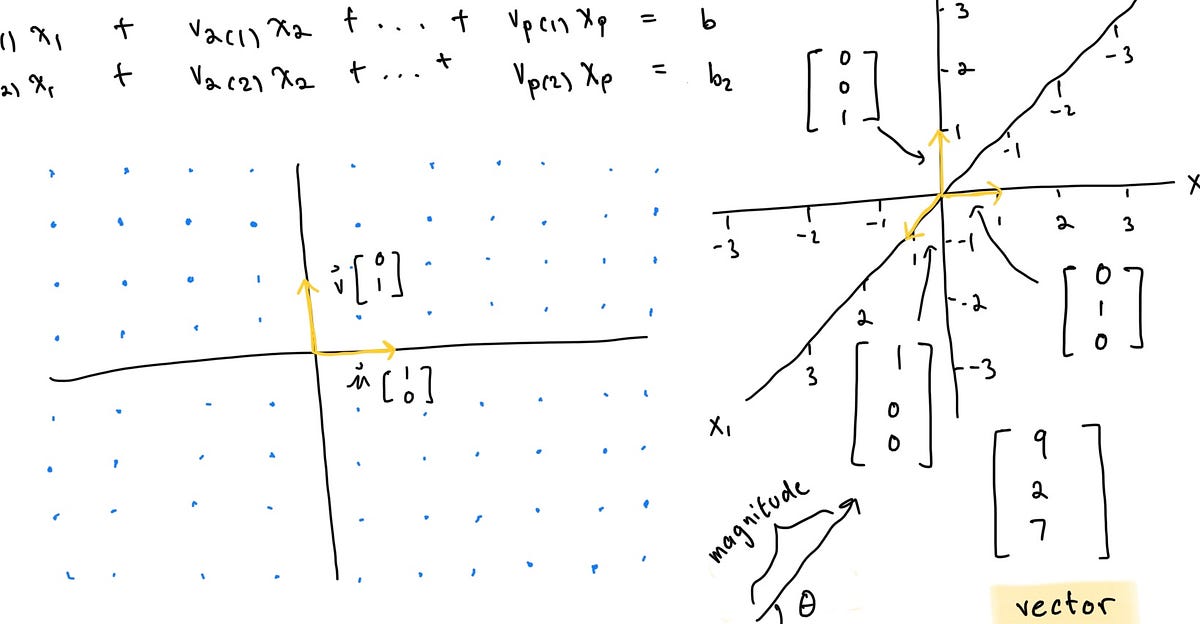 1) x₁ + v₂₍₁₎ x₂ + ... + vₚ₍₁₎ xₚ = b
2) x₁ + v₂₍₂₎ x₂ + ... + vₚ₍₂₎ xₚ = b₂
v [ 0
1 ]
u [ 1
0 ]
3
2
1
-1
-2
-3
[ 0
0
1 ]
-3
-2
-1
-3 -2 -1 1 2 3 X
1
2
3
X₁
[ 0
1
0 ]
[ 1
0
0 ]
[ 9
2
7 ]
magnitude
θ
vector